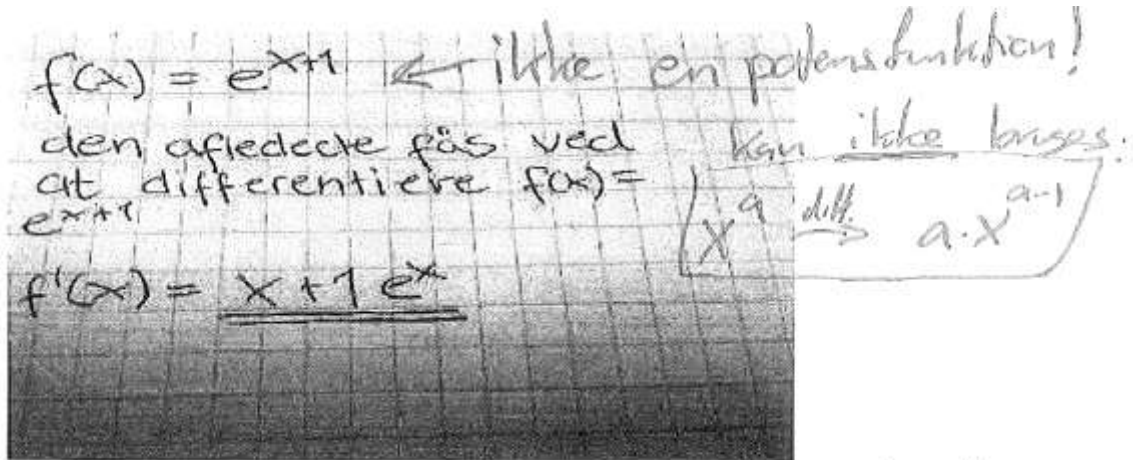 f(x) = e^{x+1} ← ikke en potensfunktion!
den afledede fås ved
at differentiere f(x) =
e^{x+1}
f'(x) = x + 1 e^x
kan ikke bruges:
x^a diff. → a · x^{a-1}